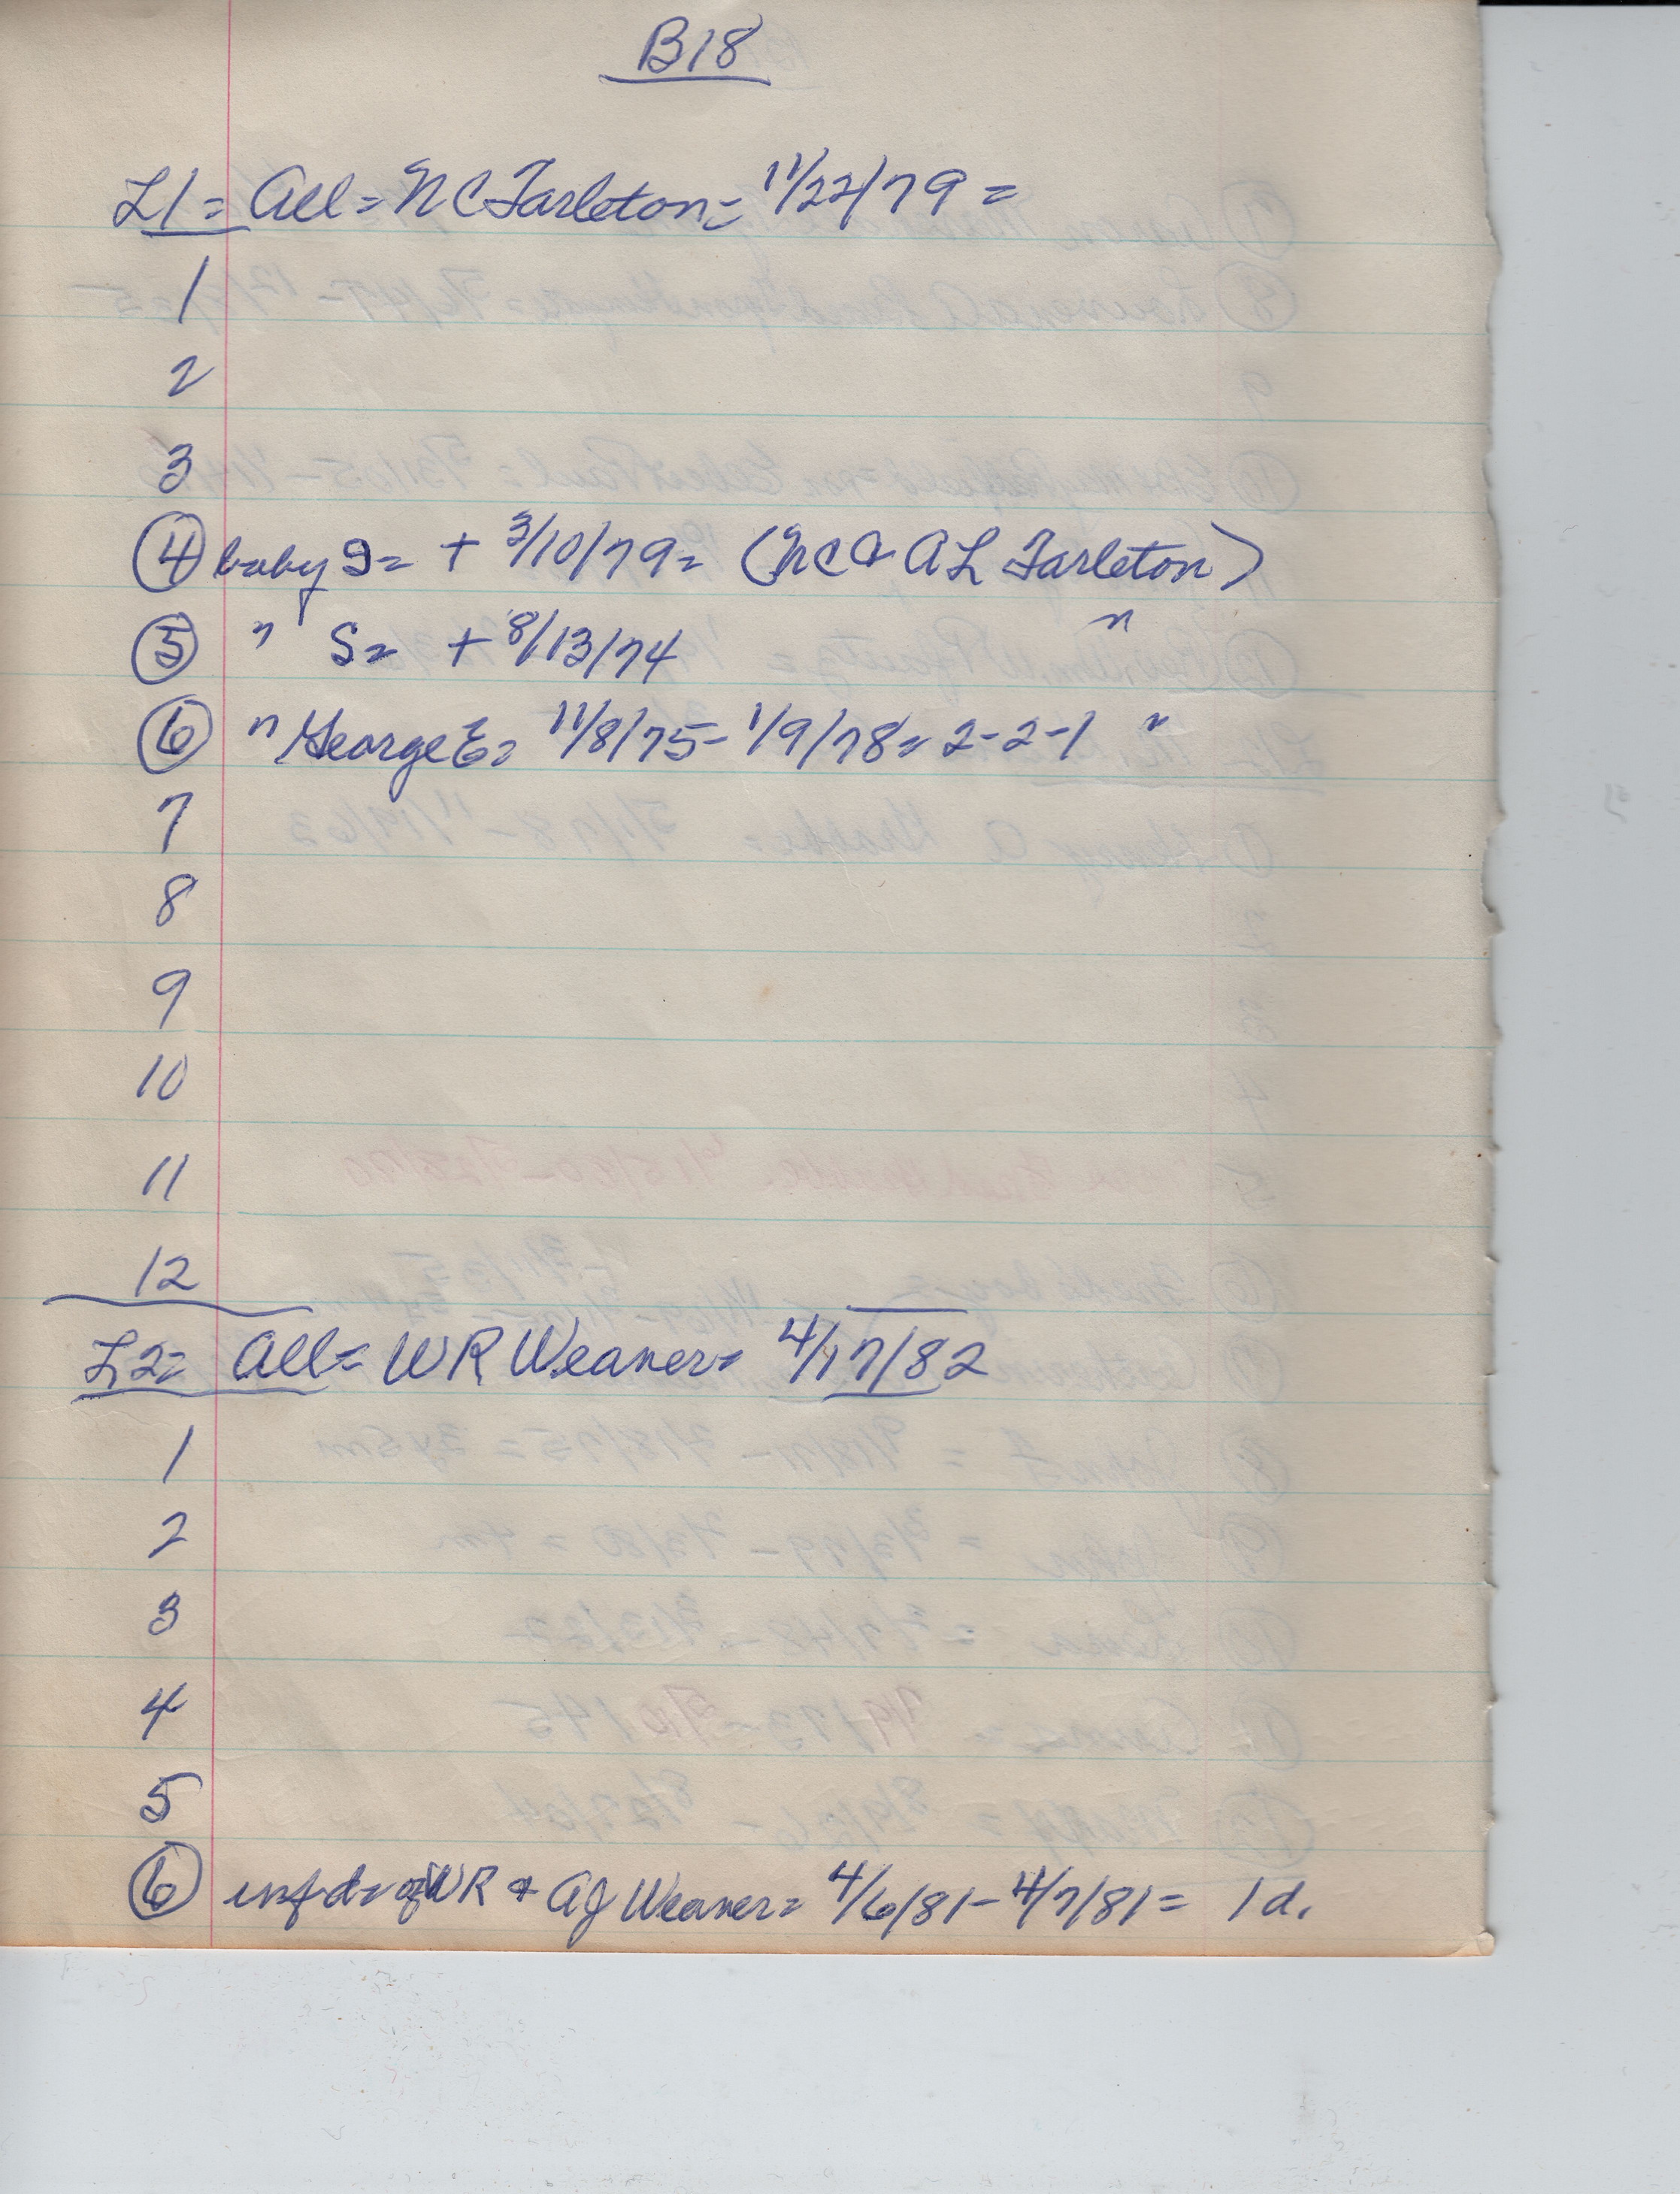 B18
L1 = All = N C Tarleton = 11/22/79 =
1
2
3
4 baby = + 3/10/79 = (N C & A L Tarleton)
5 " S = + 8/13/74 "
6 " George E = 11/8/75 - 1/9/78 = 2-2-1 "
7
8
9
10
11
12
L2 = All = W R Weaner = 4/17/82
1
2
3
4
5
6 inf d = of WR & AJ Weaner = 4/6/81 - 4/7/81 = 1 d.